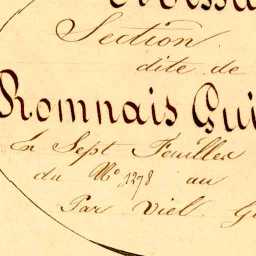 Section
dite de
Romnais Gui
En Sept Feuilles
du N° 1278 au
Par Viel. G